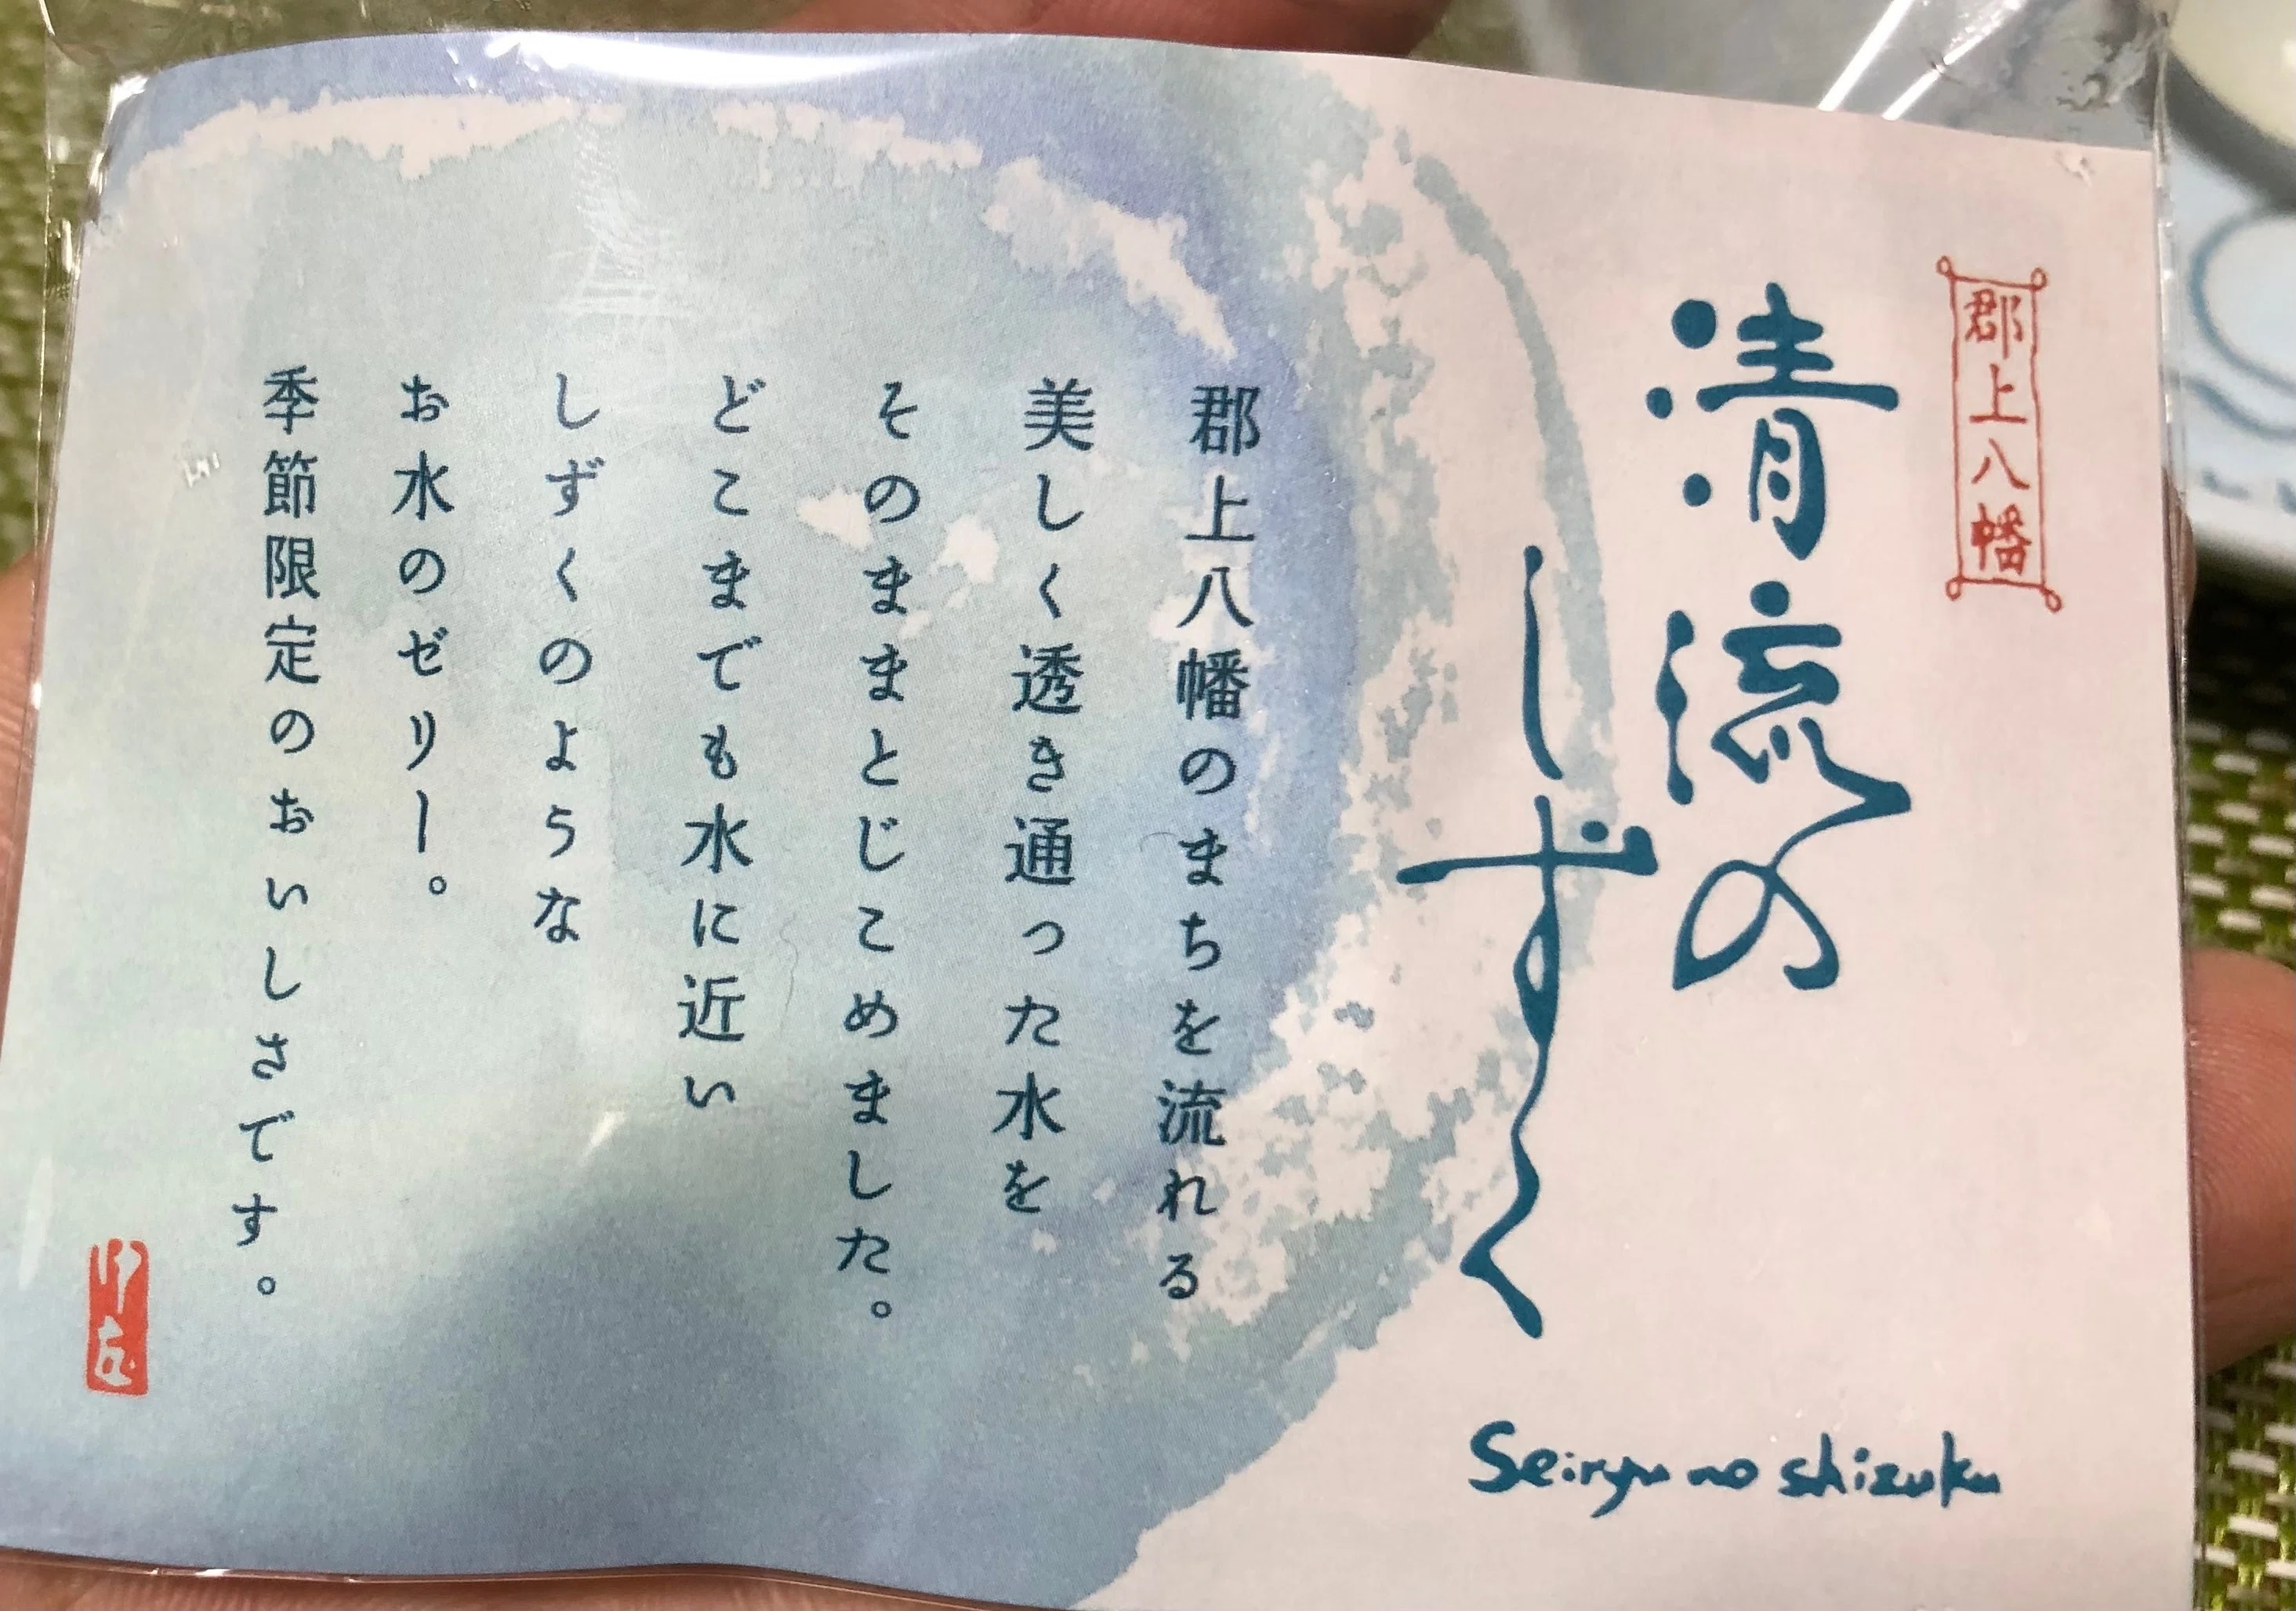 郡上八幡
清流の
しずく
Seiryu no shizuku
郡上八幡のまちを流れる
美しく透き通った水を
そのままとじこめました。
どこまでも水に近い
しずくのような
お水のゼリー。
季節限定のおいしさです。